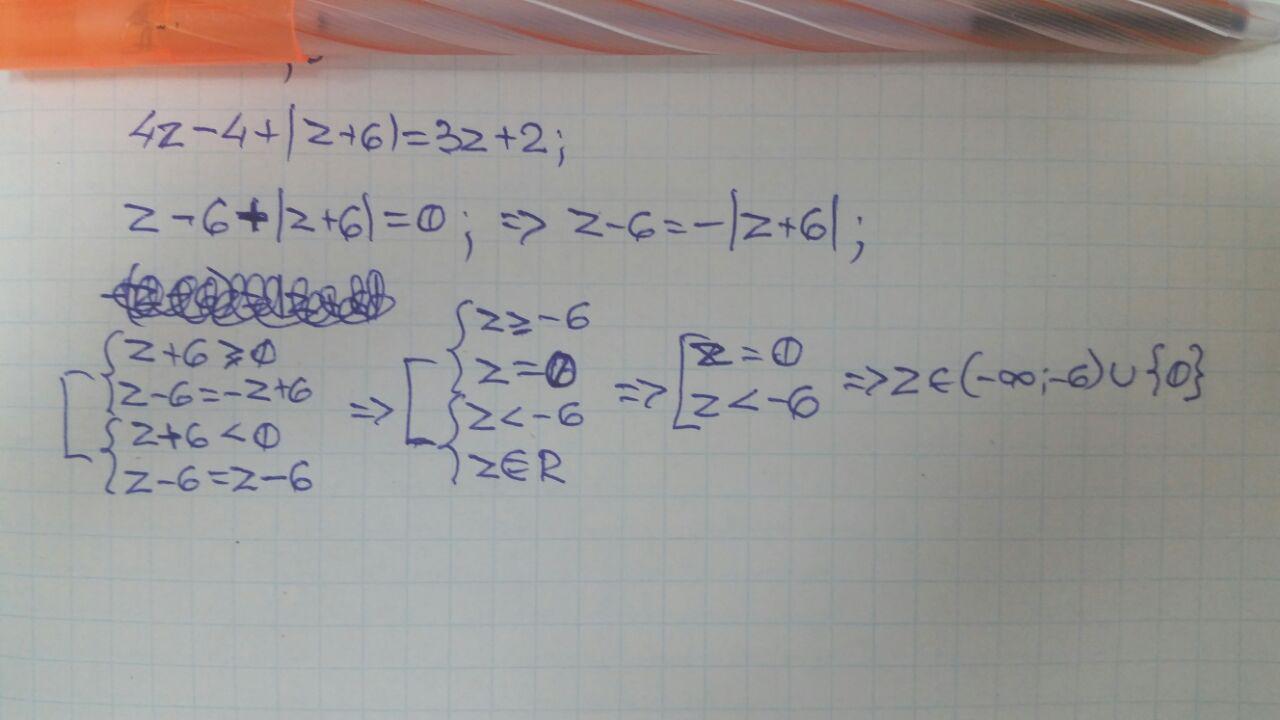 4z-4+|z+6|=3z+2;
z-6+|z+6|=0; => z-6=-|z+6|;
[ { z+6≥0 z-6=-z+6 { z+6<0 z-6=z-6 => [ { z≥-6 z=0 { z<-6 z∈R => [ z=0 z<-6 => z∈(-∞;-6)∪{0}